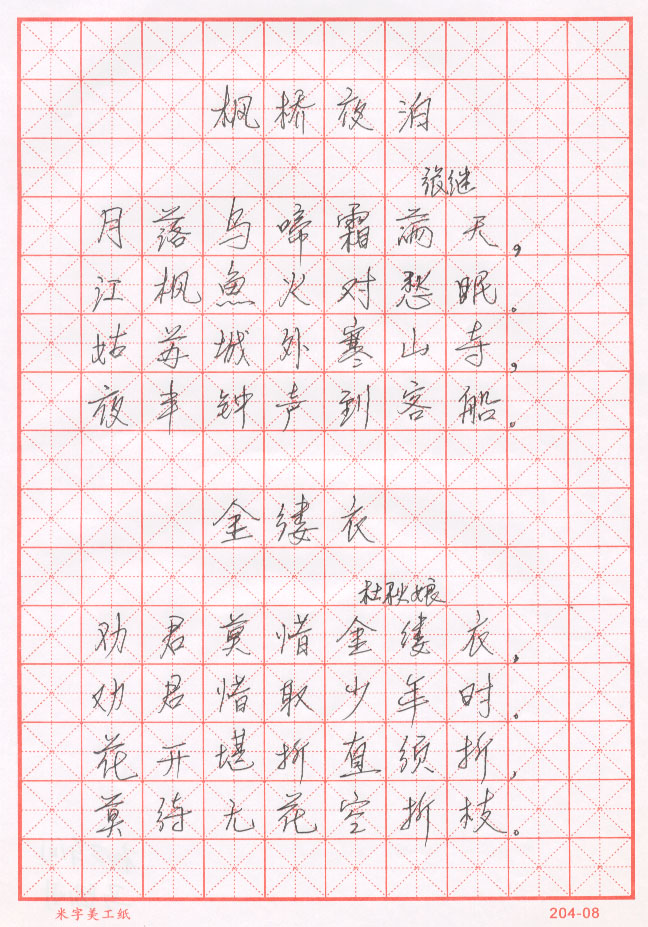 枫桥夜泊
张继
月落乌啼霜满天，
江枫魚火对愁眠。
姑苏城外寒山寺，
夜半钟声到客船。
金缕衣
杜秋娘
劝君莫惜金缕衣，
劝君惜取少年时。
花开堪折直须折，
莫待无花空折枝。
米字美工纸
204-08